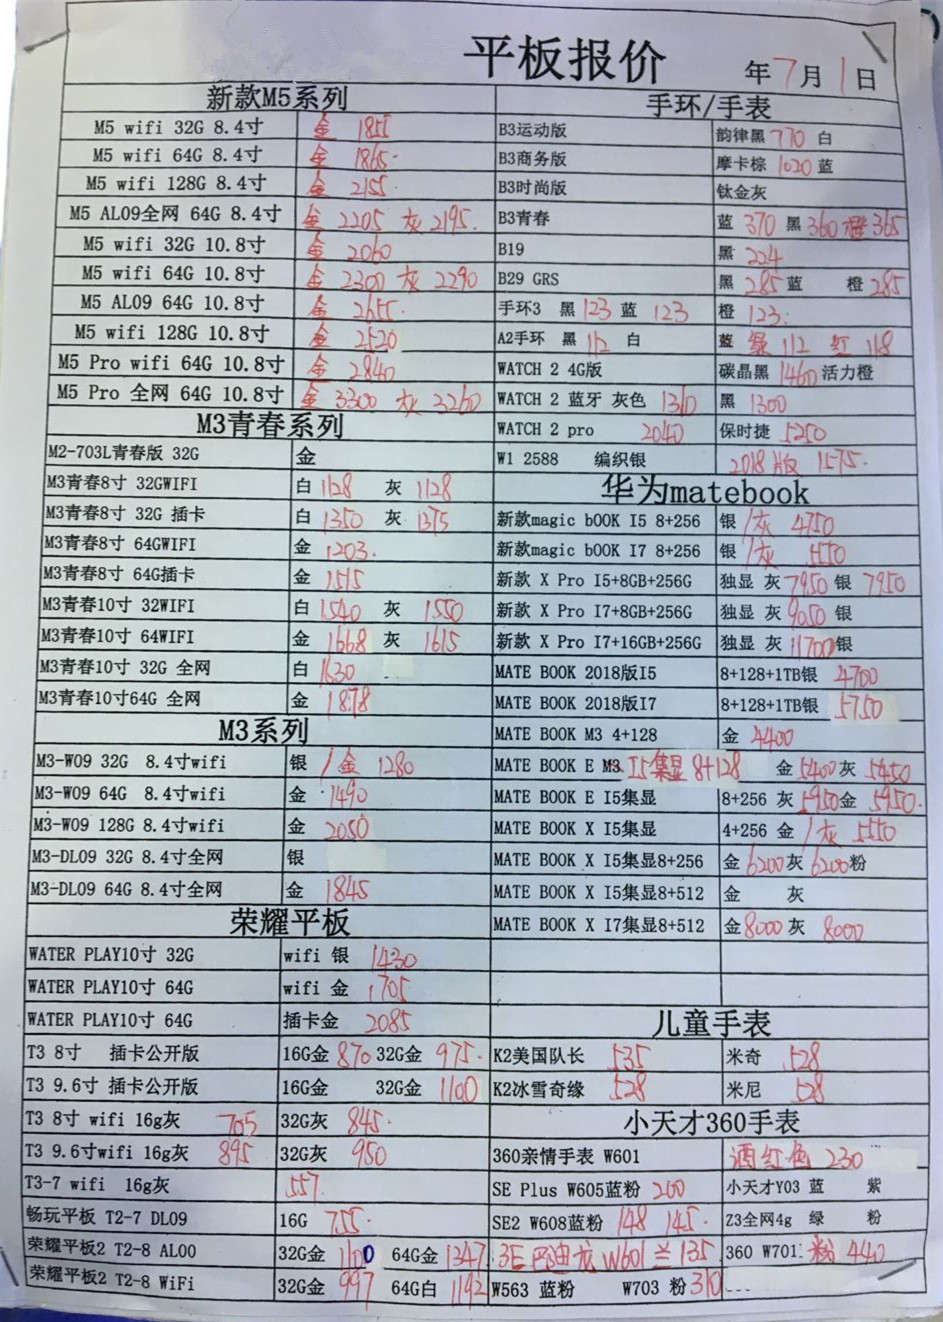 平板报价
年7月1日
新款M5系列
M5 wifi 32G 8.4寸 金 1855
M5 wifi 64G 8.4寸 金 1865
M5 wifi 128G 8.4寸 金 2155
M5 AL09全网 64G 8.4寸 金 2205 灰 2195
M5 wifi 32G 10.8寸 金 2060
M5 wifi 64G 10.8寸 金 2300 灰 2290
M5 AL09 64G 10.8寸 金 2655
M5 wifi 128G 10.8寸 金 2520
M5 Pro wifi 64G 10.8寸 金 2840
M5 Pro 全网 64G 10.8寸 金 3300 灰 3260
M3青春系列
M2-703L青春版 32G 金
M3青春8寸 32GWIFI 白 1128 灰 1128
M3青春8寸 32G 插卡 白 1350 灰 1375
M3青春8寸 64GWIFI 金 1203
M3青春8寸 64G插卡 金 1515
M3青春10寸 32WIFI 白 1540 灰 1550
M3青春10寸 64WIFI 金 1668 灰 1615
M3青春10寸 32G 全网 白 1630
M3青春10寸64G 全网 金 1878
M3系列
M3-W09 32G 8.4寸wifi 银 / 金 1280
M3-W09 64G 8.4寸wifi 金 1490
M3-W09 128G 8.4寸wifi 金 2050
M3-DL09 32G 8.4寸全网 银
M3-DL09 64G 8.4寸全网 金 1845
荣耀平板
WATER PLAY10寸 32G wifi 银 1430
WATER PLAY10寸 64G wifi 金 1705
WATER PLAY10寸 64G 插卡金 2085
T3 8寸 插卡公开版 16G金 870 32G金 975
T3 9.6寸 插卡公开版 16G金 32G金 1100
T3 8寸 wifi 16g灰 705 32G灰 845
T3 9.6寸wifi 16g灰 895 32G灰 950
T3-7 wifi 16g灰 557
畅玩平板 T2-7 DL09 16G 755
荣耀平板2 T2-8 AL00 32G金 1100 64G金 1347
荣耀平板2 T2-8 WiFi 32G金 997 64G白 1192
手环/手表
B3运动版 韵律黑 770 白
B3商务版 摩卡棕 1020 蓝
B3时尚版 钛金灰
B3青春 蓝 370 黑 360 橙 365
B19 黑 224
B29 GRS 黑 285 蓝 橙 285
手环3 黑 123 蓝 123 橙 123
A2手环 黑 112 白 蓝 绿 112 红 118
WATCH 2 4G版 碳晶黑 1460 活力橙
WATCH 2 蓝牙 灰色 1310 黑 1300
WATCH 2 pro 2040 保时捷 5250
W1 2588 编织银 2018版 1575
华为matebook
新款magic bOOK I5 8+256 银 / 灰 4750
新款magic bOOK I7 8+256 银 / 灰 5550
新款 X Pro I5+8GB+256G 独显 灰 7950 银 7950
新款 X Pro I7+8GB+256G 独显 灰 9050 银
新款 X Pro I7+16GB+256G 独显 灰 11700 银
MATE BOOK 2018版I5 8+128+1TB银 4700
MATE BOOK 2018版I7 8+128+1TB银 5750
MATE BOOK M3 4+128 金 4400
MATE BOOK E M3 I5集显 8+128 金 5400 灰 5450
MATE BOOK E I5集显 8+256 灰 5950 金 5950
MATE BOOK X I5集显 4+256 金 / 灰 5550
MATE BOOK X I5集显8+256 金 6200 灰 6200 粉
MATE BOOK X I5集显8+512 金 灰
MATE BOOK X I7集显8+512 金 8000 灰 8000
儿童手表
K2美国队长 535 米奇 528
K2冰雪奇缘 528 米尼 528
小天才360手表
360亲情手表 W601 酒红色 230
SE Plus W605蓝粉 260 小天才Y03 蓝 紫
SE2 W608蓝粉 148 145 Z3全网4g 绿 粉
3E 巴迪龙 W601 兰 135 360 W701 粉 440
W563 蓝粉 W703 粉 310